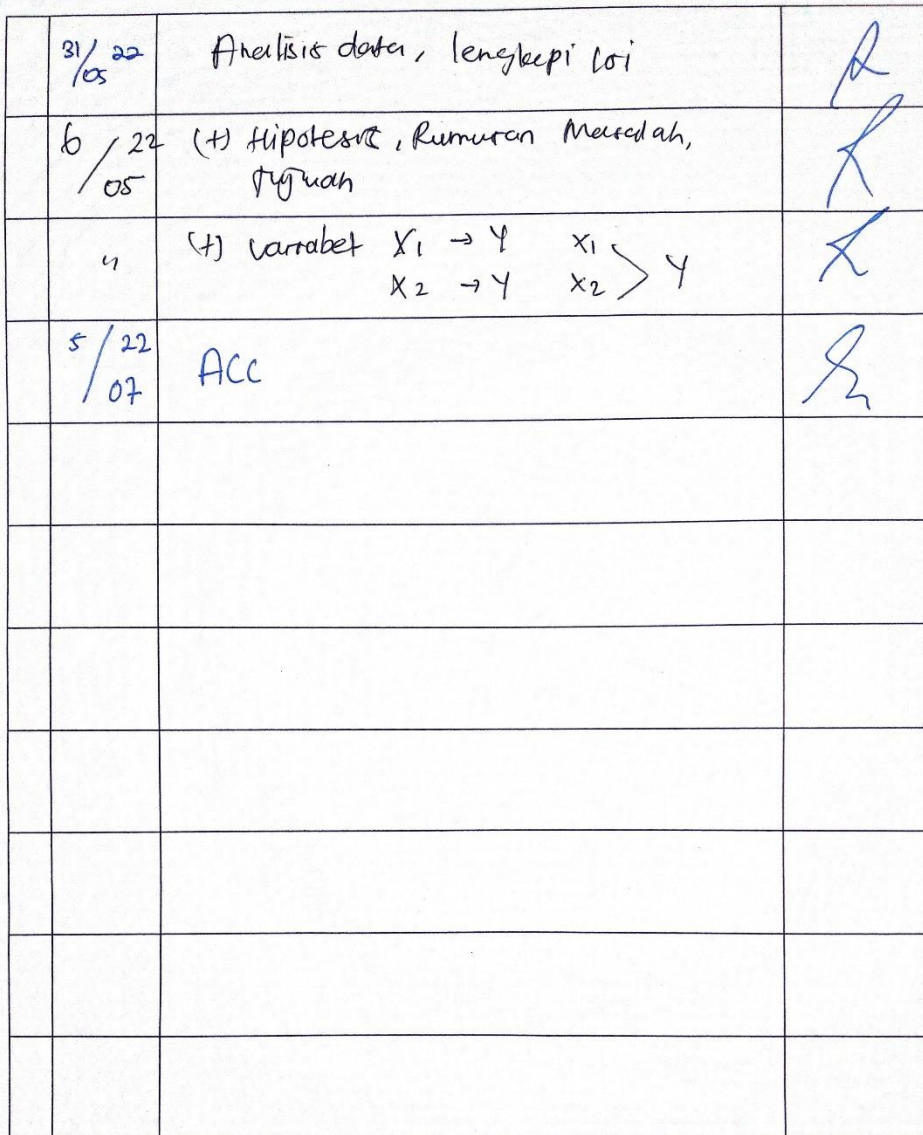 31/05 22 Analisis data, lengkapi isi
6/05 22 (+) Hipotesis, Rumusan Masalah,
tujuan
" (+) variabel X1 → Y X1
X2 → Y X2 > Y
5/07 22 ACC